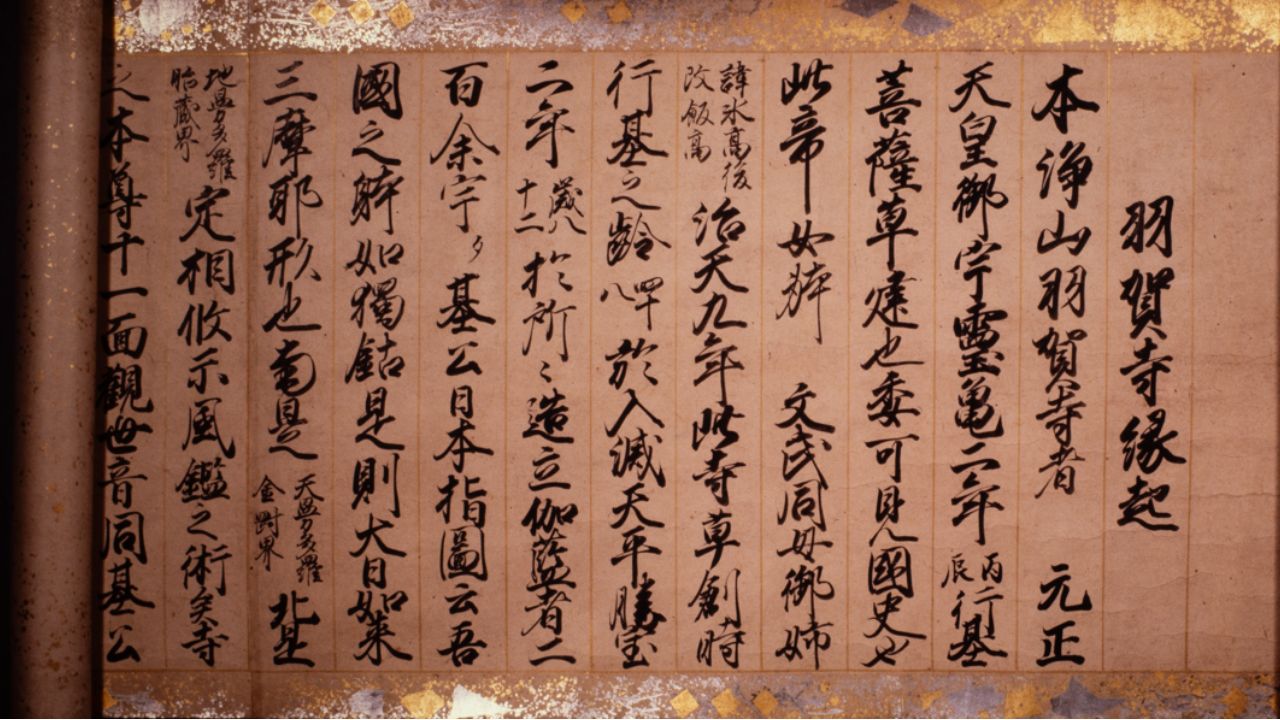 羽賀寺縁起
本浄山羽賀寺者 元正
天皇御宇霊亀二年丙辰行基
菩薩草建也委可見國史也
此帝女躰 文武同母御姉
諱氷高後改飯高治天九年此寺草創時
行基之齢四十八於入滅天平勝宝
二年歳八十二於所々造立伽藍者二
百余宇々基公日本指圖云吾
國之躰如獨鈷是則大日如来
三摩耶形也南是天曼荼羅金剛界北是
地曼荼羅胎蔵界定相攸示風鑑之術矣寺
之本尊十一面観世音同基公